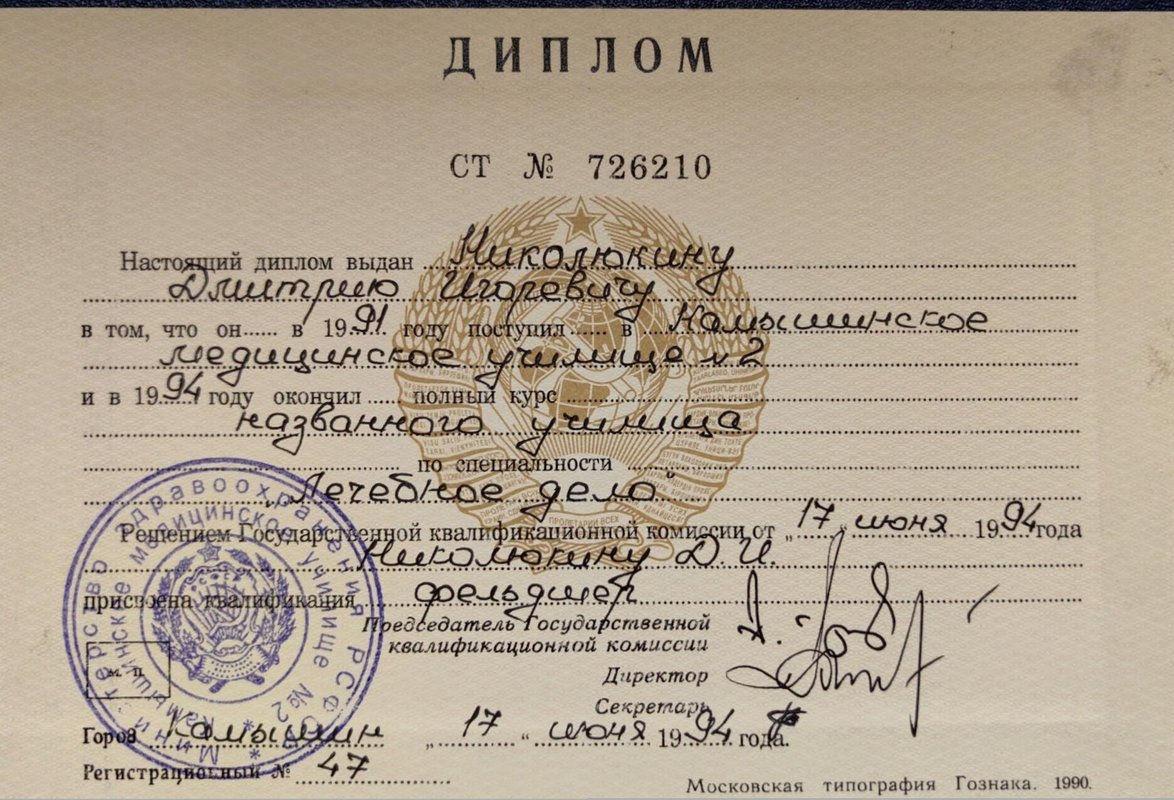 ДИПЛОМ
СТ № 726210
Настоящий диплом выдан Николюкину
Дмитрию Игоревичу
в том, что он в 1991 году поступил в Камышинское
медицинское училище №2
и в 1994 году окончил полный курс
названного училища
по специальности
„Лечебное дело"
Решением Государственной квалификационной комиссии от „17" июня 1994 года
Николюкину Д.И.
присвоена квалификация фельдшер
Председатель Государственной
квалификационной комиссии
Директор
Секретарь
Город Камышин „17" июня 1994 года.
Регистрационный № 47
Московская типография Гознака. 1990.
М. П.
Министерство здравоохранения РСФСР
Камышинское медицинское училище №2